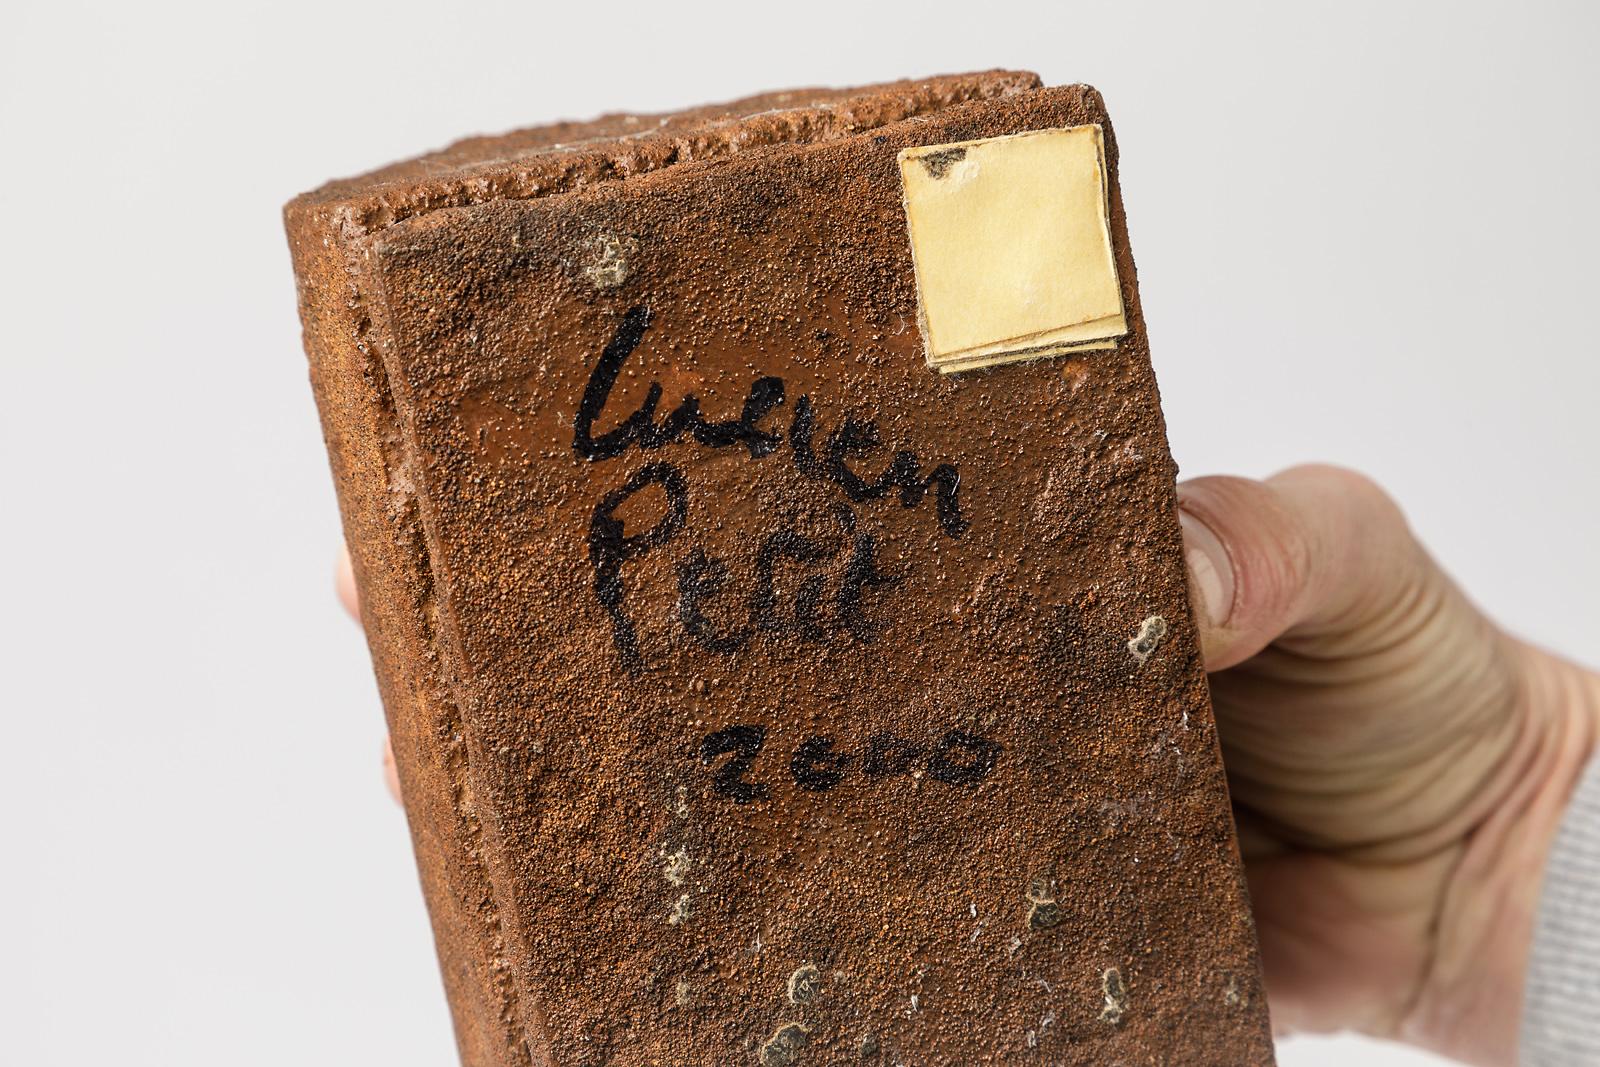 Lucien
Petit
2000